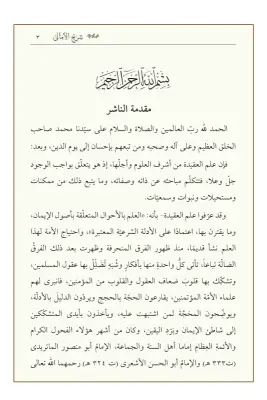 ٣ شرح الأمالي
بِسْمِ اللهِ الرَّحْمٰنِ الرَّحِيْمِ
مقدمة الناشر
الحمد لله ربّ العالمين والصلاة والسلام على سيّدنا محمد صاحب
الخلق العظيم وعلى آله وصحبه ومن تبعهم بإحسان إلى يوم الدين، وبعد:
فإن علم العقيدة من أشرف العلوم وأجلّها، إذ هو يتعلّق بواجب الوجود
جلّ وعلا، فتتكلّم مباحثه عن ذاته وصفاته، وما يتبع ذلك من ممكنات
ومستحيلات ونبوات وسمعيات.
وقد عرّفوا علم العقيدة- بأنه: «العلم بالأحوال المتعلّقة بأصول الإيمان،
وما يقترن بها، اعتمادًا على الأدلة الشرعيّة المعتبرة»، واحتياج الأمة لهذا
العلم نشأ قديمًا، منذ ظهور الفرق المنحرفة وظهرت بعد ذلك الفرق
الضالّة تباعاً، تأتي كلُّ واحدةٍ منها بأفكارٍ وشُبَهٍ تُضَلِّلُ بها عقول المسلمين،
وتشكّك بها قلوبَ ضعاف العقول والقلوب من المؤمنين، فانبرى لهم
علماء الأمّة المؤتمنين، يقارعون الحجّة بالحجج ويردّون الدليل بالأدلّة،
ويوضّحون المحجّة لمن اشتبهت عليه، ويأخذون بأيدي المتشكّكين
إلى شاطئ الإيمان وبَرْدِ اليقين، وكان من أشهر هؤلاء الفحول الكرام
والأئمة العِظام إماما أهل السنة والجماعة، الإمام أبو منصور الماتريدي
(ت٣٣٣ هـ) والإمام أبو الحسن الأشعري (ت ٣٢٤ هـ) رحمهما الله تعالى